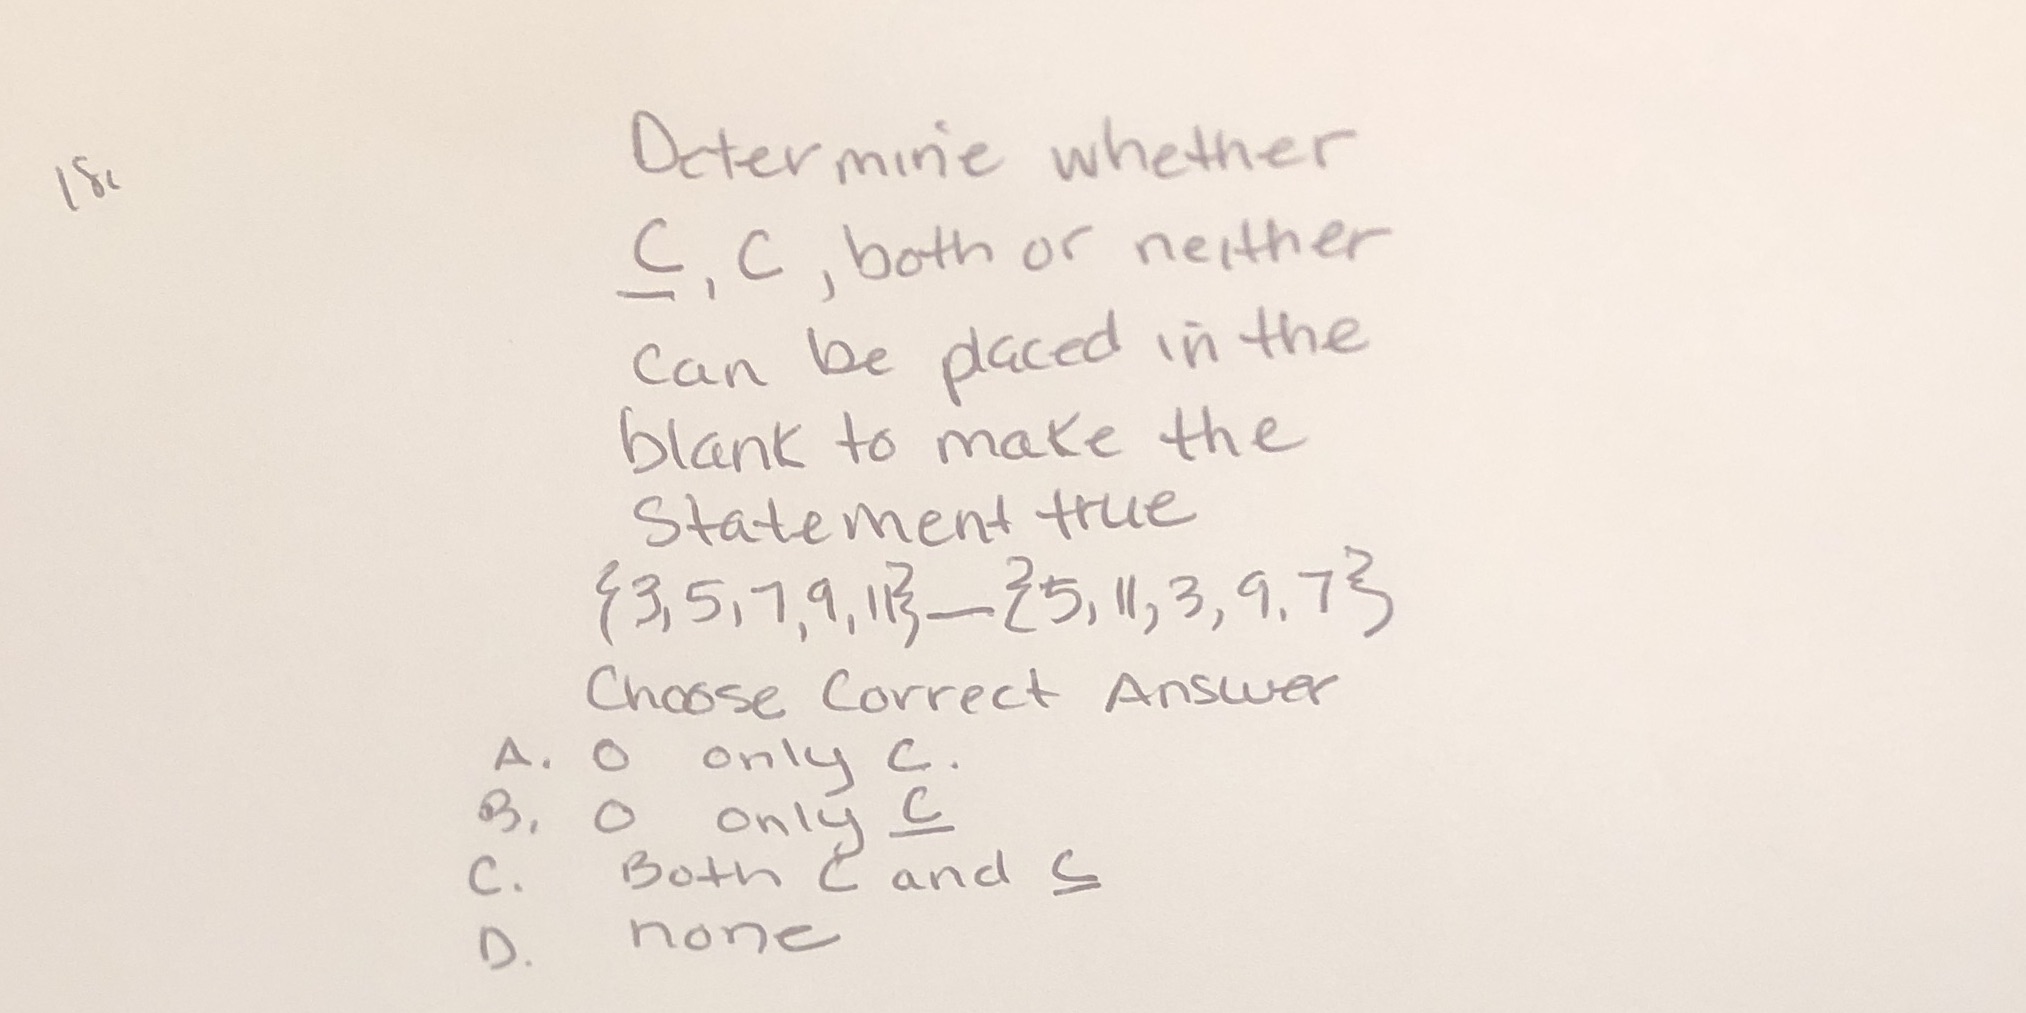 18.
Determine whether
⊆, ⊂, both or neither
can be placed in the
blank to make the
Statement true
{3,5,7,9,11}_{5,11,3,9,7}
Choose Correct Answer
A. O only ⊂.
B. O only ⊆
C. Both ⊂ and ⊆
D. none